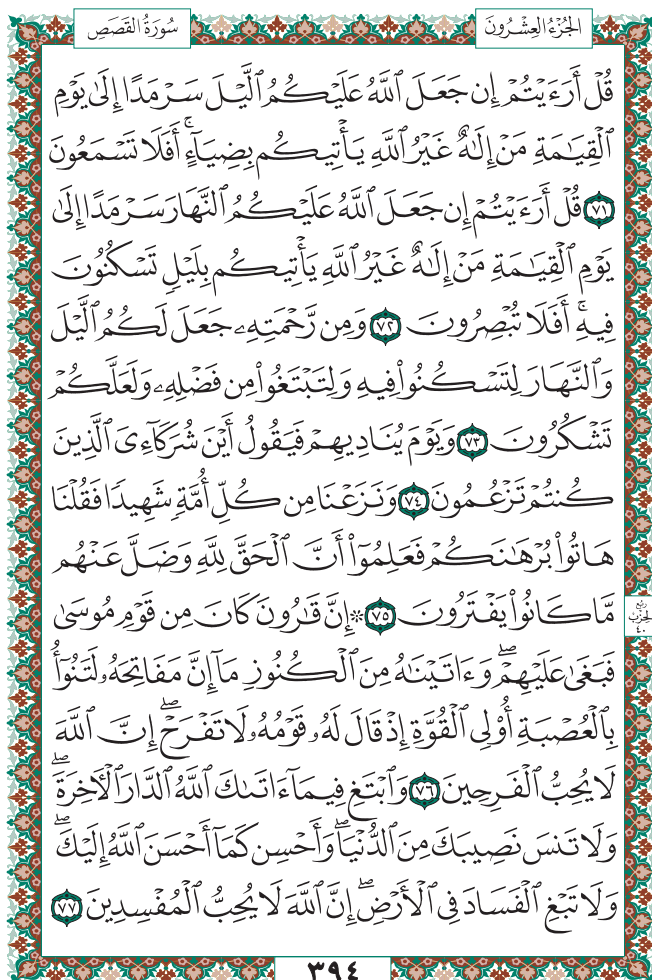 الجُزْءُ العِشْرُونَ
سُورَةُ القَصَصِ
قُلْ أَرَءَيْتُمْ إِن جَعَلَ ٱللَّهُ عَلَيْكُمُ ٱلَّيْلَ سَرْمَدًا إِلَىٰ يَوْمِ
ٱلْقِيَٰمَةِ مَنْ إِلَٰهٌ غَيْرُ ٱللَّهِ يَأْتِيكُم بِضِيَآءٍۚ أَفَلَا تَسْمَعُونَ
٧١ قُلْ أَرَءَيْتُمْ إِن جَعَلَ ٱللَّهُ عَلَيْكُمُ ٱلنَّهَارَ سَرْمَدًا إِلَىٰ
يَوْمِ ٱلْقِيَٰمَةِ مَنْ إِلَٰهٌ غَيْرُ ٱللَّهِ يَأْتِيكُم بِلَيْلٍ تَسْكُنُونَ
فِيهِۚ أَفَلَا تُبْصِرُونَ ٧٢ وَمِن رَّحْمَتِهِۦ جَعَلَ لَكُمُ ٱلَّيْلَ
وَٱلنَّهَارَ لِتَسْكُنُوا۟ فِيهِ وَلِتَبْتَغُوا۟ مِن فَضْلِهِۦ وَلَعَلَّكُمْ
تَشْكُرُونَ ٧٣ وَيَوْمَ يُنَادِيهِمْ فَيَقُولُ أَيْنَ شُرَكَآءِىَ ٱلَّذِينَ
كُنتُمْ تَزْعُمُونَ ٧٤ وَنَزَعْنَا مِن كُلِّ أُمَّةٍ شَهِيدًا فَقُلْنَا
هَاتُوا۟ بُرْهَٰنَكُمْ فَعَلِمُوٓا۟ أَنَّ ٱلْحَقَّ لِلَّهِ وَضَلَّ عَنْهُم
مَّا كَانُوا۟ يَفْتَرُونَ ٧٥ ۞ إِنَّ قَٰرُونَ كَانَ مِن قَوْمِ مُوسَىٰ
فَبَغَىٰ عَلَيْهِمْۖ وَءَاتَيْنَٰهُ مِنَ ٱلْكُنُوزِ مَآ إِنَّ مَفَاتِحَهُۥ لَتَنُوٓأُ
بِٱلْعُصْبَةِ أُو۟لِى ٱلْقُوَّةِ إِذْ قَالَ لَهُۥ قَوْمُهُۥ لَا تَفْرَحْۖ إِنَّ ٱللَّهَ
لَا يُحِبُّ ٱلْفَرِحِينَ ٧٦ وَٱبْتَغِ فِيمَآ ءَاتَىٰكَ ٱللَّهُ ٱلدَّارَ ٱلْءَاخِرَةَۖ
وَلَا تَنسَ نَصِيبَكَ مِنَ ٱلدُّنْيَاۖ وَأَحْسِن كَمَآ أَحْسَنَ ٱللَّهُ إِلَيْكَۖ
وَلَا تَبْغِ ٱلْفَسَادَ فِى ٱلْأَرْضِۖ إِنَّ ٱللَّهَ لَا يُحِبُّ ٱلْمُفْسِدِينَ ٧٧
ربع
الحزب
٤٠
٣٩٤